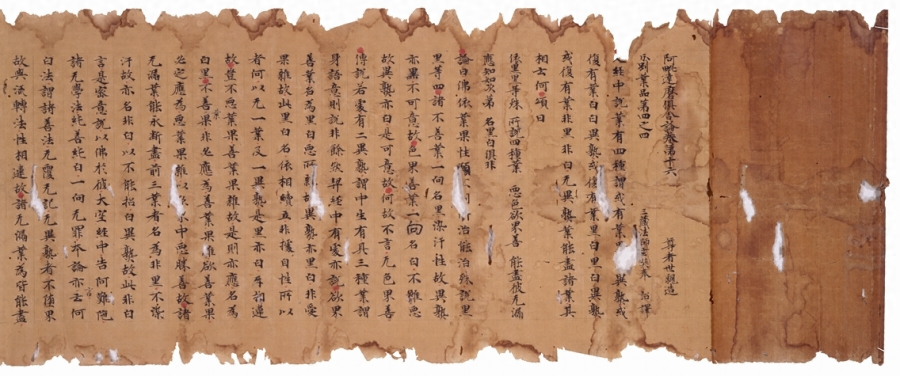 阿毗達磨俱舍論卷第十六 尊者世親造
分別業品第四之四 三藏法師玄奘奉 詔譯
又經中說業有四種謂或有業黑黑異熟或
復有業白白異熟或復有業黑白黑白異熟
或復有業非黑非白无異熟業能盡諸業其
相云何頌曰
依黑黑等殊 所說四種業 惡色欲界善 能盡彼无漏
應知如次第 名黑白俱非
論曰佛依業果性類不同所治能治殊說黑
黑等四諸不善業一向名黑染汙性故異熟
亦黑不可意故色界善業一向名白不雜惡
故異熟亦白是可意故何故不言无色界善
傳說若處有二異熟謂中生有具三種業謂
身語意則說非餘然契經中有處亦說欲界
善業名為黑白惡所雜故異熟亦黑白非愛
果雜故此黑白名依相續立非據自性所以
者何以无一業及一異熟是黑亦白互相違
故豈不惡業果善業果雜故是則亦應名為
白黑不善業果非必應為善業果雜欲善業果
必定應為惡業果雜以欲界中惡勝善故諸
无漏業能永斷盡前三業者名為非黑不染
汙故亦名非白以不能招白異熟故此非白
言是密意說以佛於彼大空經中告阿難陀
諸无學法純善純白一向无罪本論亦云何
白法謂諸善法无覆无記无異熟者不墮界
故與流轉法性相違故諸无漏業為皆能盡